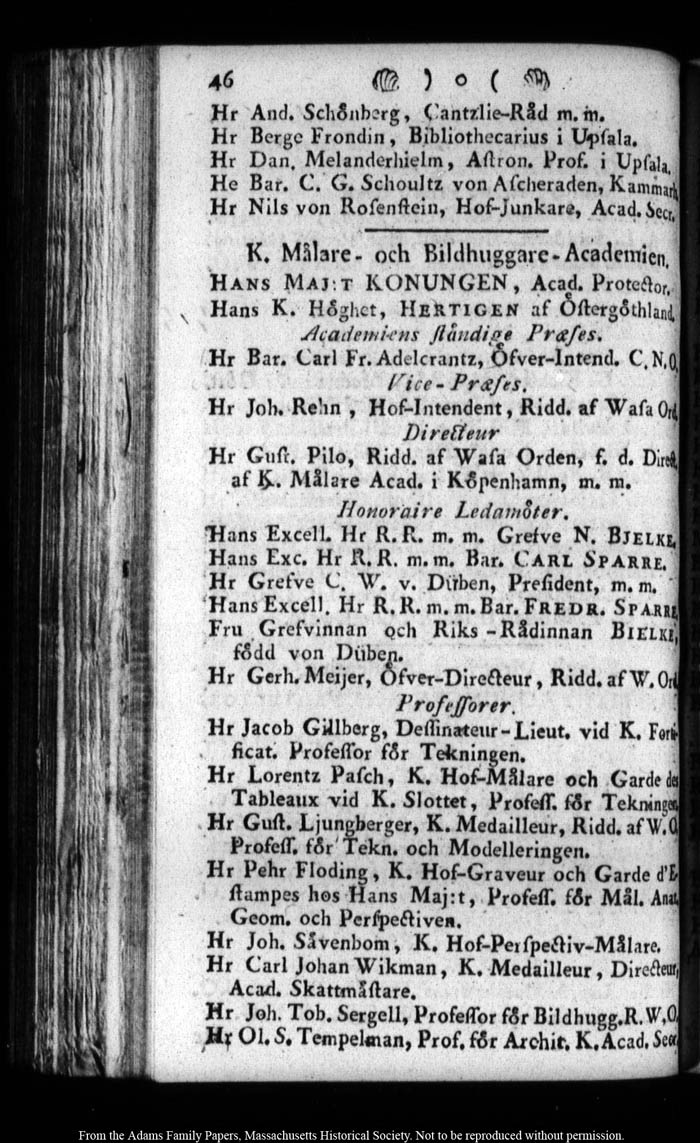 46 ) o (
Hr And. Schönberg, Cantzlie-Råd m. m.
Hr Berge Frondin, Bibliothecarius i Upſala.
Hr Dan. Melanderhielm, Aſtron. Prof. i Upſala.
He Bar. C. G. Schoultz von Aſcheraden, Kammarh
Hr Nils von Roſenſtein, Hof-Junkare, Acad. Secr.
K. Målare- och Bildhuggare-Academien.
HANS MAJ:T KONUNGEN, Acad. Protector.
Hans K. Höghet, HERTIGEN af Öſtergöthland.
Academiens ſtändige Præſes.
Hr Bar. Carl Fr. Adelcrantz, Öfver-Intend. C. N. O.
Vice-Præſes.
Hr Joh. Rehn, Hof-Intendent, Ridd. af Waſa Ord.
Directeur
Hr Guſt. Pilo, Ridd. af Waſa Orden, f. d. Direct.
af K. Målare Acad. i Köpenhamn, m. m.
Honoraire Ledamöter.
Hans Excell. Hr R. R. m. m. Grefve N. BJELKE.
Hans Exc. Hr R. R. m. m. Bar. CARL SPARRE.
Hr Grefve C. W. v. Düben, Preſident, m. m.
Hans Excell. Hr R. R. m. m. Bar. FREDR. SPARRE
Fru Grefvinnan och Riks-Rådinnan BIELKE,
född von Düben.
Hr Gerh. Meijer, Öfver-Directeur, Ridd. af W. Ord
Profeſſorer.
Hr Jacob Gillberg, Deſſinateur-Lieut. vid K. Forti-
ficat. Profeſſor för Tekningen.
Hr Lorentz Paſch, K. Hof-Målare och Garde des
Tableaux vid K. Slottet, Profeſſ. för Tekningen.
Hr Guſt. Ljungberger, K. Medailleur, Ridd. af W. O.
Profeſſ. för Tekn. och Modelleringen.
Hr Pehr Floding, K. Hof-Graveur och Garde d'E-
ſtampes hos Hans Maj:t, Profeſſ. för Mål. Anat.
Geom. och Perſpectiven.
Hr Joh. Sävenbom, K. Hof-Perſpectiv-Målare.
Hr Carl Johan Wikman, K. Medailleur, Directeur,
Acad. Skattmäſtare.
Hr Joh. Tob. Sergell, Profeſſor för Bildhugg. R. W. O.
Hr Ol. S. Tempelman, Prof. för Archit. K. Acad. Secr.
From the Adams Family Papers, Massachusetts Historical Society. Not to be reproduced without permission.